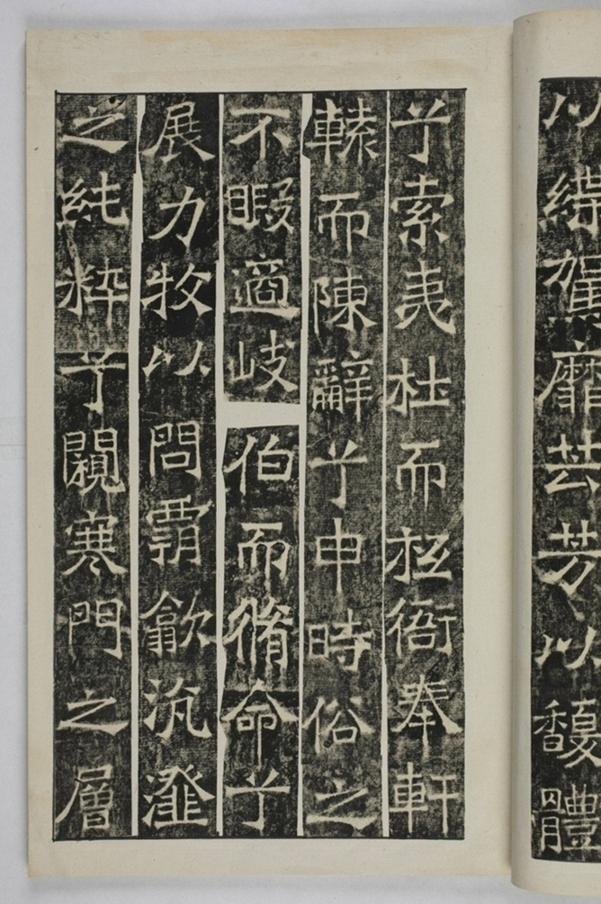 以緤駕靡芸芳以馥體
兮索夷杜而衙奉軒
轅而陳辭兮申時俗之
不暇適岐伯而脩命兮
展力牧以問霸歙沆瀣
之純粹兮闚寒門之層